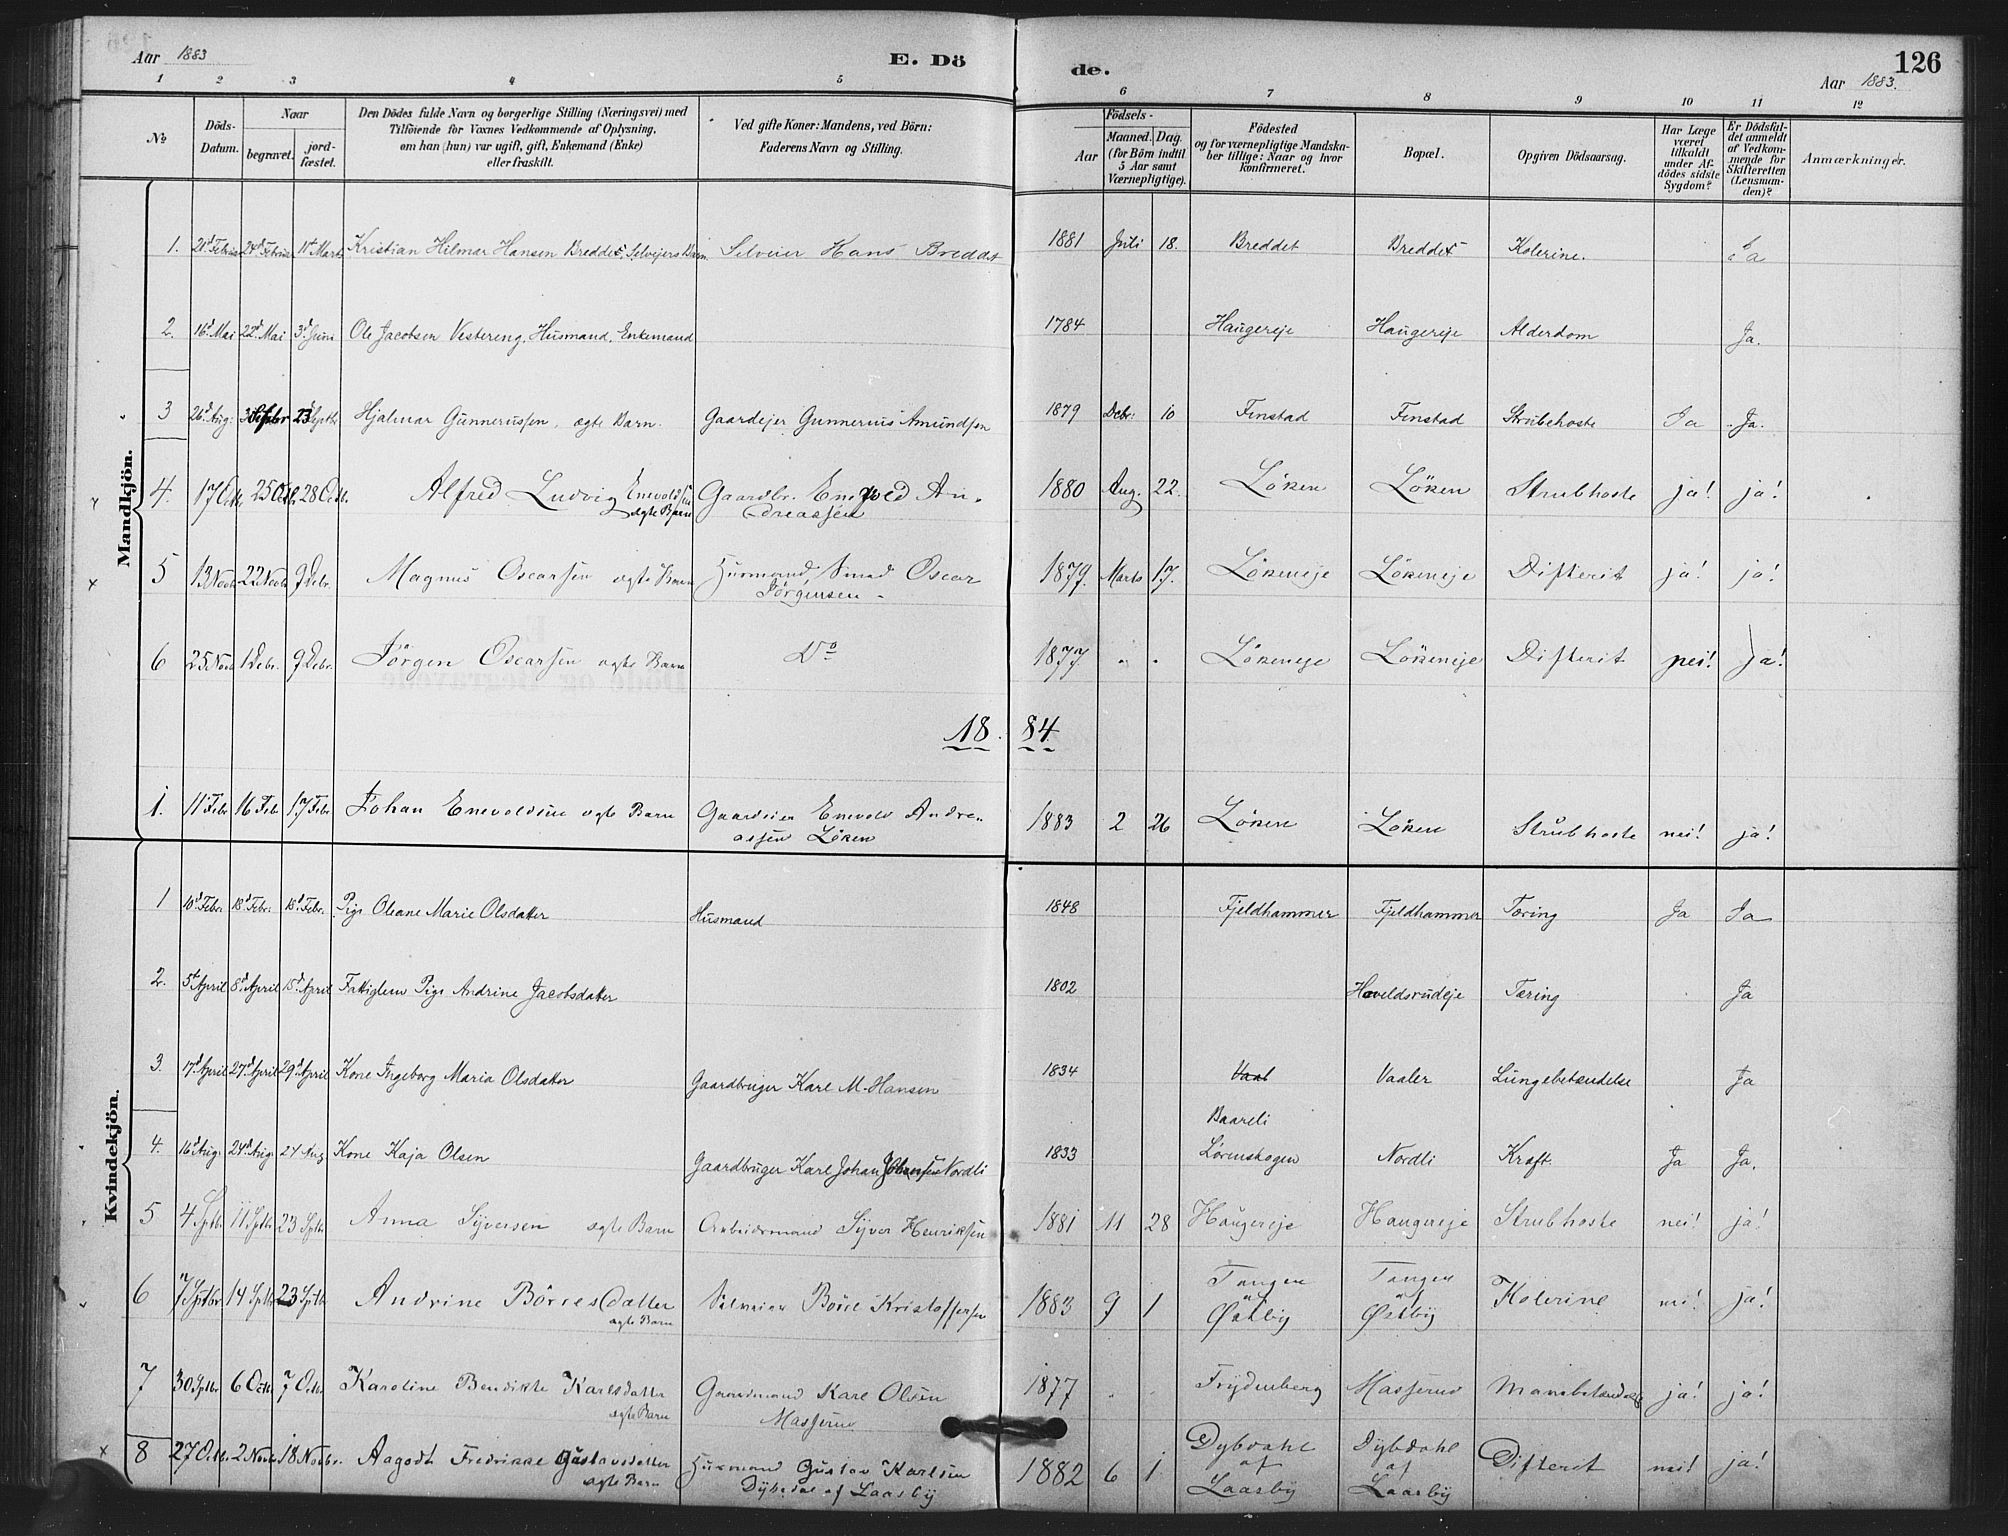 Aar 1883
E. Dö
de.
126
Aar 1883.
1 2 3 4 5 6 7 8 9 10 11 12
No
Döds-
Datum.
Naar
begravet.
jord-
fæstet.
Den Dödes fulde Navn og borgerlige Stilling (Næringsvei) med
Tilföiende for Voxnes Vedkommende af Oplysning,
om han (hun) var ugift, gift, Enkemand (Enke)
eller fraskilt.
Ved gifte Koner: Mandens, ved Börn:
Faderens Navn og Stilling.
Aar
Födsels-
Maaned. Dag.
(for Börn indtil
5 Aar samt
Værnepligtige).
Födested
og for værnepligtige Mandska-
ber tillige: Naar og hvor
konfirmeret.
Bopæl.
Opgiven Dödsaarsag.
Har Læge
været
tilkaldt
under Af-
dödes sidste
Sygdom?
Er Dödsfal-
det anmeldt
af Vedkom-
mende for
Skifteretten
(Lensman-
den)?
Anmærkninger.
Mandkjön.
1. 24d Februar 11t Marts Kristian Hilmar Hansen Breddet, Selvejers Barn. Selveier Hans Breddet 1881 Juli 18. Breddet Breddet Kolerine. Ja
2. 16d Mai 22d Mai 3d Juni Ole Jacobsen Vestereng, Husmand, Enkemand 1784 Haugereje Haugereje Alderdom Ja.
3 26d Aug. 23d Septbr Hjalmar Gunnerussen, ægte Barn. Gaardejer Gunnerius Amundsen 1879 Decbr: 10 Finstad Finstad Strubehoste Ja Ja.
4. 17 Octb. 25 Octb. 28 Octb. Alfred Ludvig Enevoldsen ægte Barn Gaardbr. Enevold An-
dreassen 1880 Aug. 22. Löken Löken Strubhoste ja! ja!
5 13 Novb. 22 Novb. 9 Debr. Magnus Oscarsen ægte Barn Husmand, Smed Oscar
Jörgensen 1879. Marts 17. Lökeneje Lökeneje Difterit ja! ja!
6 25 Novb. 1 Debr. 9 Debr. Jörgen Oscarsen ægte Barn Do 1877. " " Lökeneje Lökeneje Difterit nei! ja!
18 84.
1. 11 Febr 16 Feb 17 Febr. Johan Enevoldsen ægte Barn Gaardeier Enevold Andre-
assen Löken 1883 2 26 Löken Löken Strubhoste nei! ja!
Kvindekjön.
1 10d Febr. 18d Febr. 18d Febr. Pige Oleane Marie Olsdatter Husmand 1848 Fjeldhammer Fjeldhammer Tæring Ja Ja
2. 5t April 8d April 15d April Fattiglem Pige Andrine Jacobsdatter 1802 Haveldsrudeje Tæring Ja
3. 17d April 27d April 29d April Kone Ingeborg Maria Olsdatter Gaardbruger Karl M. Hansen 1834 Vaal Vaaler Lungebetændelse Ja
4. 16d Aug. 24d Aug. 27 Aug Kone Kaja Olsen Gaardbruger Karl Johan Johansen Nordli 1833 Baareli
Lörenskogen Nordli Kræft. Ja Ja.
5 4 Sptb. 11 Sptb. 23 Sptb. Anna Syversen ægte Barn Arbeidsmand Syver Henriksen 1881 11 28 Haugereje Haugereje Strubhoste nei! ja!
6 7 Sptbr 14 Sptb. 23 Sptb. Andrine Börresdatter
ægte Barn Selveier Börre Kristoffersen 1883 9 1 Tangen
af
Østby Tangen
af
Østby Kolerine nei! ja!
7 30 Sptbr. 6 Octb. 7 Octb. Karoline Bendikte Karlsdatter
ægte Barn Gaardmand Karl Olsen
Masserud 1877 " " Frydenberg Masserud ja! ja!
8 27 Octb. 2 Novb. 18 Novbr. Aagodt Fredrikke Gustavsdatter
ægte Barn Husmand Gustav Karlsen
Dybdal af Laasby 1882 6 1 Dybdahl
af
Laasby Dybdahl
af
Laasby Difterit nei! ja!